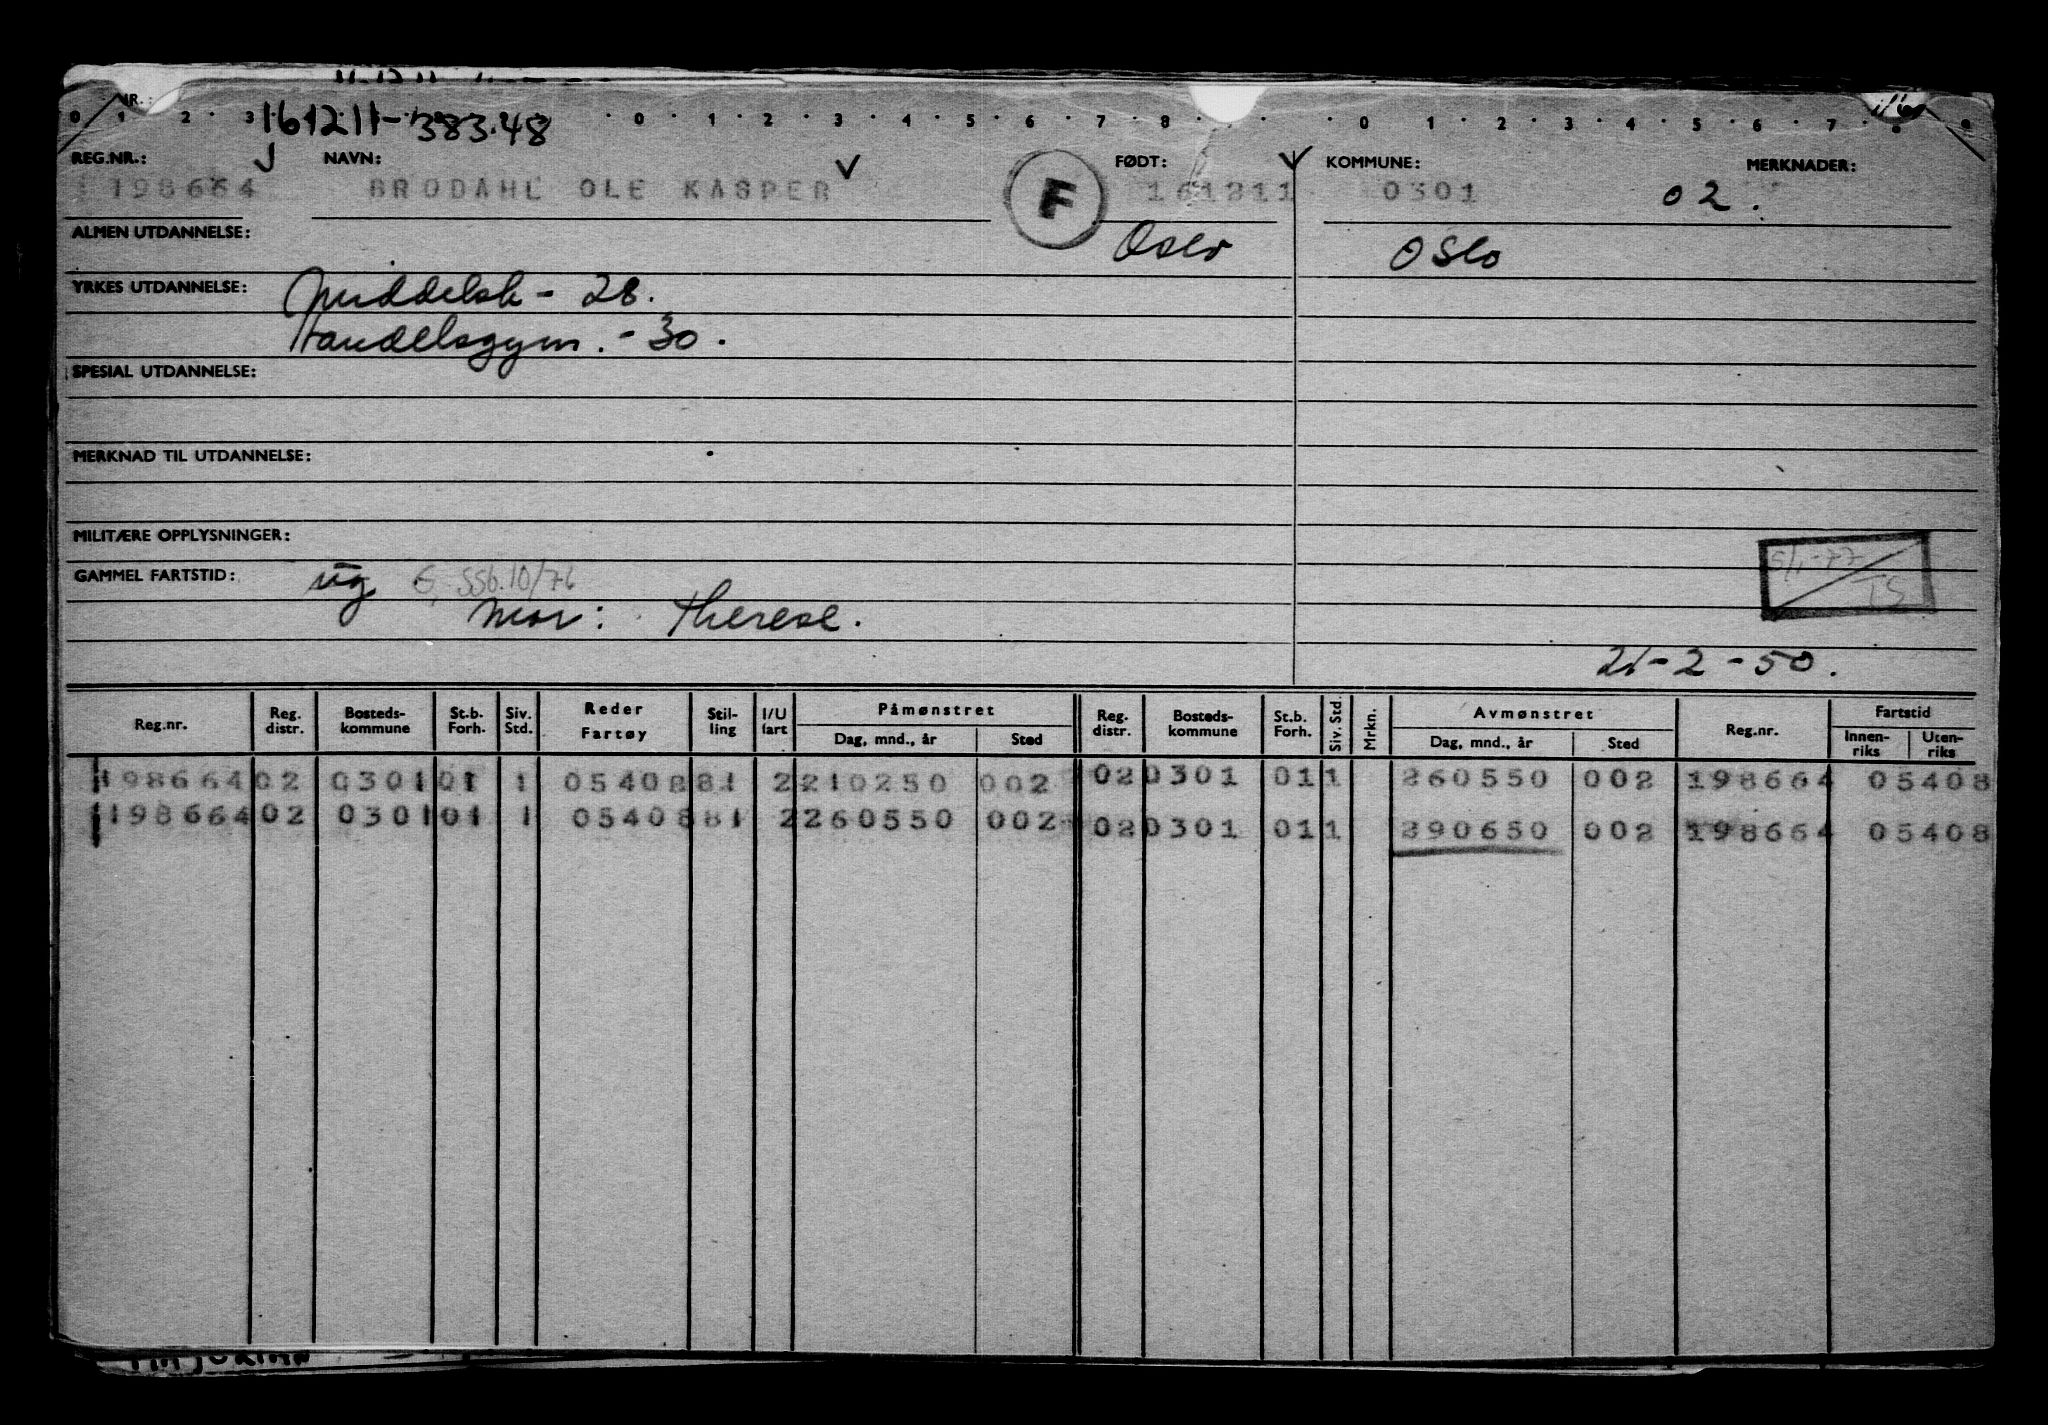 NR.:
0 1 2 3 0 1 2 3 4 5 6 7 8 0 1 2 3 4 5 6 7 8 9
161211-38348
REG.NR.: NAVN: FØDT: KOMMUNE: MERKNADER:
198664 BRODAHL OLE KASPER F 161211 0301 02.
ALMEN UTDANNELSE: Oslo Oslo
YRKES UTDANNELSE: Middelsk - 28.
Handelsgym. - 30.
SPESIAL UTDANNELSE:
MERKNAD TIL UTDANNELSE:
MILITÆRE OPPLYSNINGER:
5/1-77
GAMMEL FARTSTID: ug SSb.10/76
TS
Mor: Therese.
21-2-50.
Reg.nr. Reg. distr. Bosteds-kommune St.b. Forh. Siv. Std. Reder Fartøy Stil-ling I/U fart Påmønstret Dag, mnd., år Sted Reg. distr. Bosteds-kommune St.b. Forh. Siv. Std. Mrkn. Avmønstret Dag, mnd., år Sted Reg.nr. Fartstid Innen-riks Uten-riks
198664 02 0301 01 1 05408 81 2 210250 002 02 0301 01 1 260550 002 198664 05408
198664 02 0301 01 1 05408 81 2 260550 002 02 0301 01 1 290650 002 198664 05408